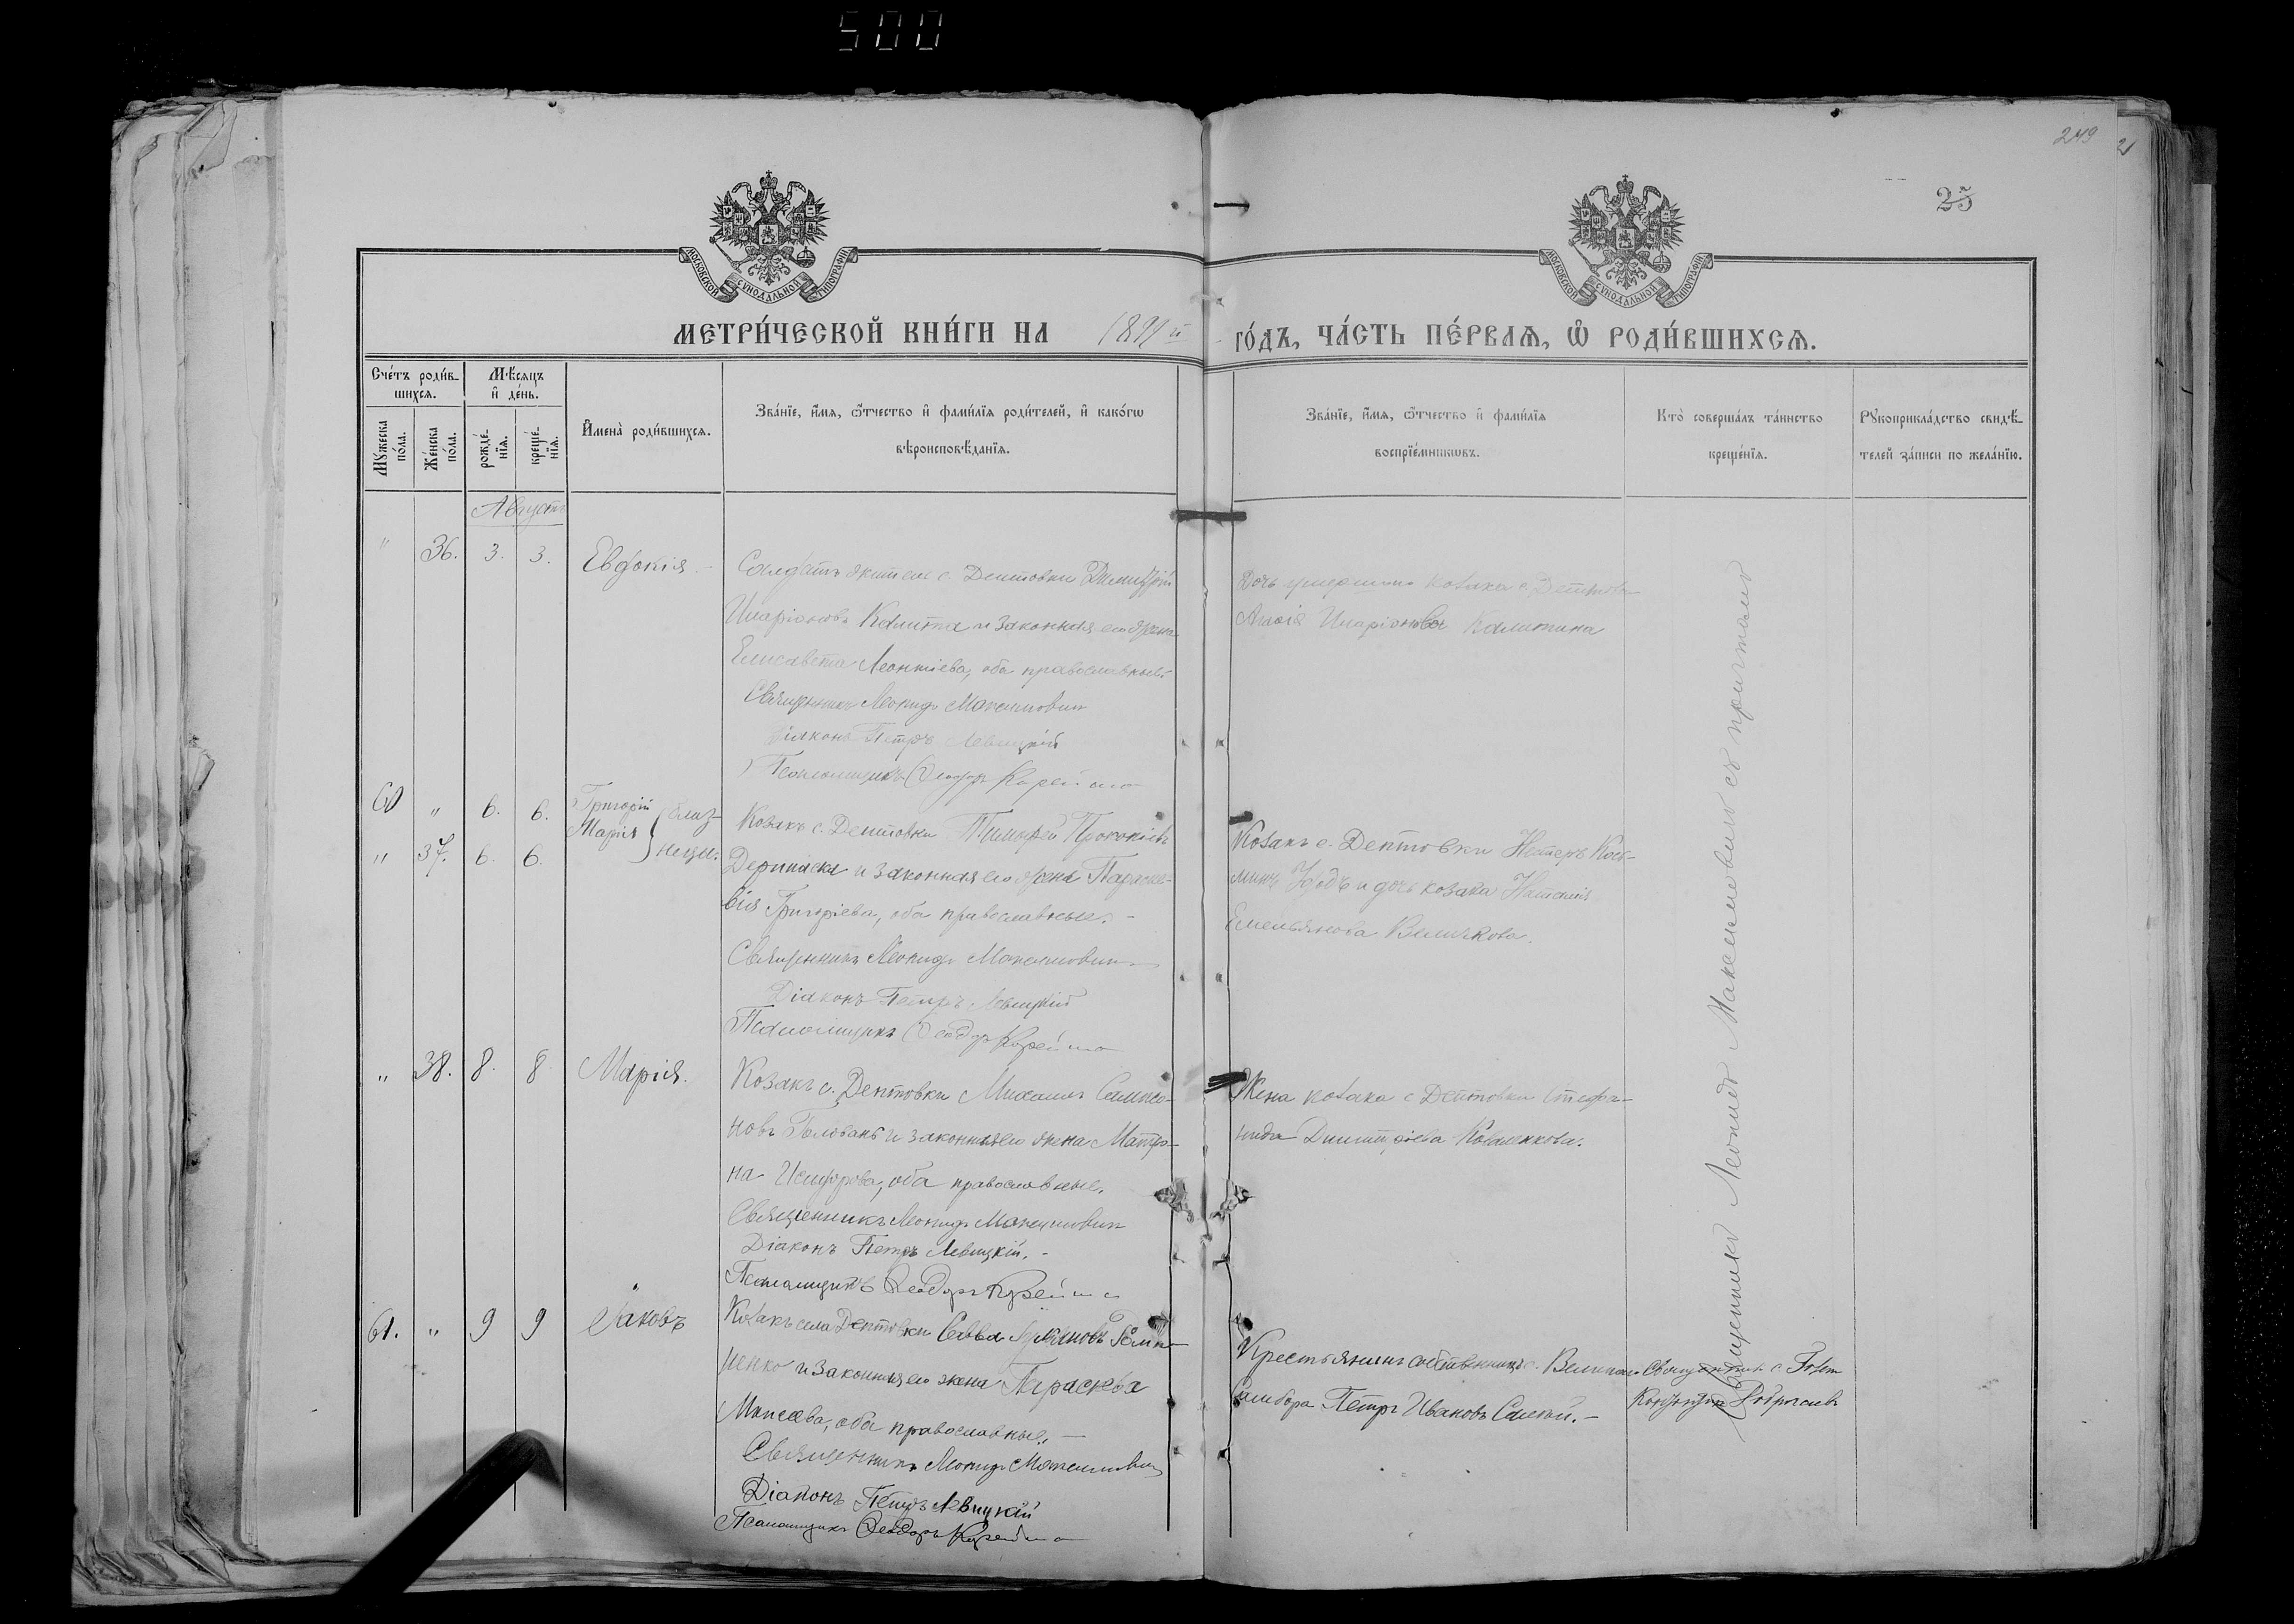 500
249
25
МОСКОВСКОЙ СѴНОДАЛЬНОЙ ТИПОГРАФІИ
МОСКОВСКОЙ СѴНОДАЛЬНОЙ ТИПОГРАФІИ
МЕТРИ́ЧЕСКОЙ КНИ́ГИ НА 1891 й го́дъ, ча́сть пе́рвая, ѡ҆ роди́вшихся.
Сче́тъ роди́в-
шихся.
Мꙋ́жеска по́ла.
Же́нска по́ла.
Мѣ́сяцъ и҆ де́нь.
рожде́-
нїя.
креще́-
нїя.
И҆мена̀ роди́вшихся.
Зва́нїе, и҆́мя, ѻ҆́тчество и҆ фами́лїя роди́телей, и҆ како́гѡ
вѣроисповѣ́данїя.
Зва́нїе, и҆́мя, ѻ҆́тчество и҆ фами́лїя
воспрїе́мникѡвъ.
Кто̀ соверша́лъ та́инство
креще́нїя.
Рꙋкоприкла́дство свидѣ́-
телей за́писи по жела́нїю.
Августъ
" 36. 3. 3. Евдокія
Солдатъ житель с. Дептовки Димитрій
Иларіоновъ Калита и законная его жена
Елисавета Леонтіева, оба православные.
Священникъ Леонидъ Максимович
Діаконъ Петръ Левицкій
Псаломщикъ Ѳеодоръ
Дочь умершаго козака с. Дептовки
Иларіонова Калитина
60 " 6. 6. Григорій
" 37. 6. 6. Марія
близ-
нецы.
Козакъ с. Дептовки Тимофей Прокопіевъ
Дерипаска и законная его жена Параске-
вія Григоріева, оба православные. -
Священникъ Леонидъ Максимович
Діаконъ Петръ Левицкій
Псаломщикъ Ѳеодоръ
Козакъ с. Дептовки Нестеръ Косъ-
минъ и дочь козака Наталія
Емельянова Величкова.
" 38. 8. 8 Марія.
Козакъ с. Дептовки Михаилъ Самсо-
новъ Голованъ и законная его жена Матро-
на Исидорова, оба православные.
Священникъ Леонидъ Максимович
Діаконъ Петръ Левицкій. -
Псаломщикъ Ѳеодоръ
Жена козака с Дептовки Стефа-
нида Димитріева Коваленкова.
61. " 9 9 Іаковъ
Козакъ села Дептовки Савва
ненко и законная его жена Параскева
Моисеева, оба православные. -
Священникъ Леонидъ Максимович
Діаконъ Петръ Левицкій
Псаломщикъ Ѳеодоръ
Крестьянинъ собственникъ с. Великаго
Самбора Петръ Ивановъ -
Священникъ Леонидъ Максимовичъ съ причтомъ